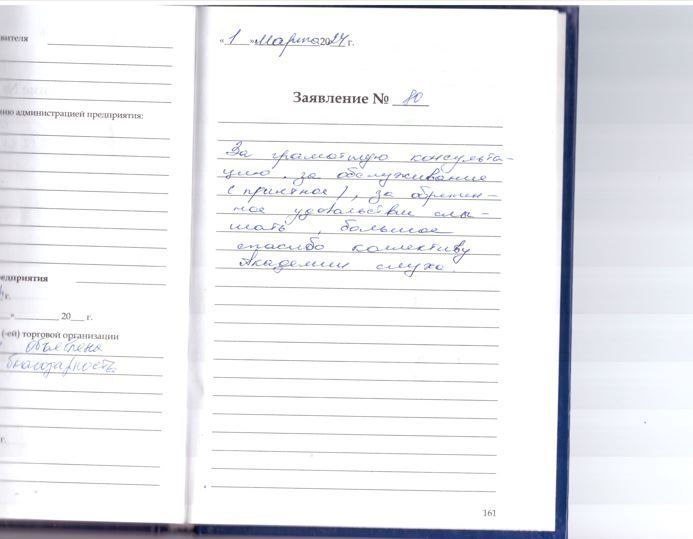 вителя
нию администрацией предприятия:
редприятия
г.
» 20 г.
(-ей) торговой организации
объявлена
благодарность
г.
« 1 » Марта 2024 г.
Заявление № 80
За грамотную консульта-
цию, за обслуживание
(приятное), за обретен-
ное удовольствие слы-
шать, большое
спасибо коллективу
Академии слуха.
161